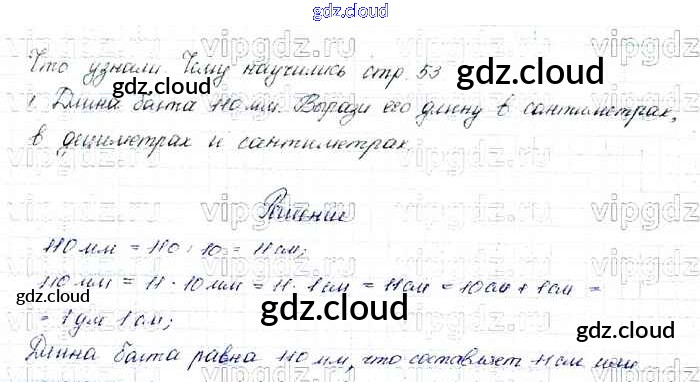 gdz.cloud
vipgdz vipgdz vipgdz vipgdz
Что узнали. Чему научились стр. 53
gdz.cloud gdz.cloud
1. Длина болта 110 мм. Вырази его длину в сантиметрах,
в дециметрах и сантиметрах.
vipgdz vipgdz vipgdz vipgdz
Решение
110 мм = 110 : 10 = 11 см;
gdz.cloud
110 мм = 11 · 10 мм = 11 · 1 см = 11 см = 10 см + 1 см =
gdz.cloud gdz.cloud gdz.cloud
= 1 дм 1 см;
Длина болта равна 110 мм, что составляет 11 см или